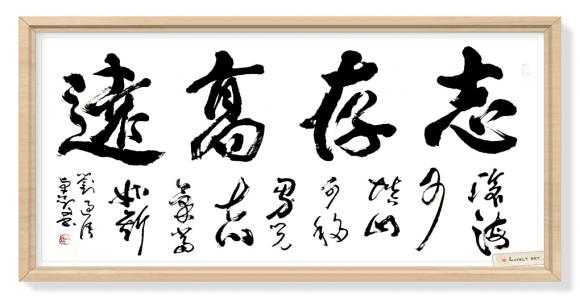 志存高遠
滄海
可
填山
可移
男兒
志
氣當
如斯
劉過詩